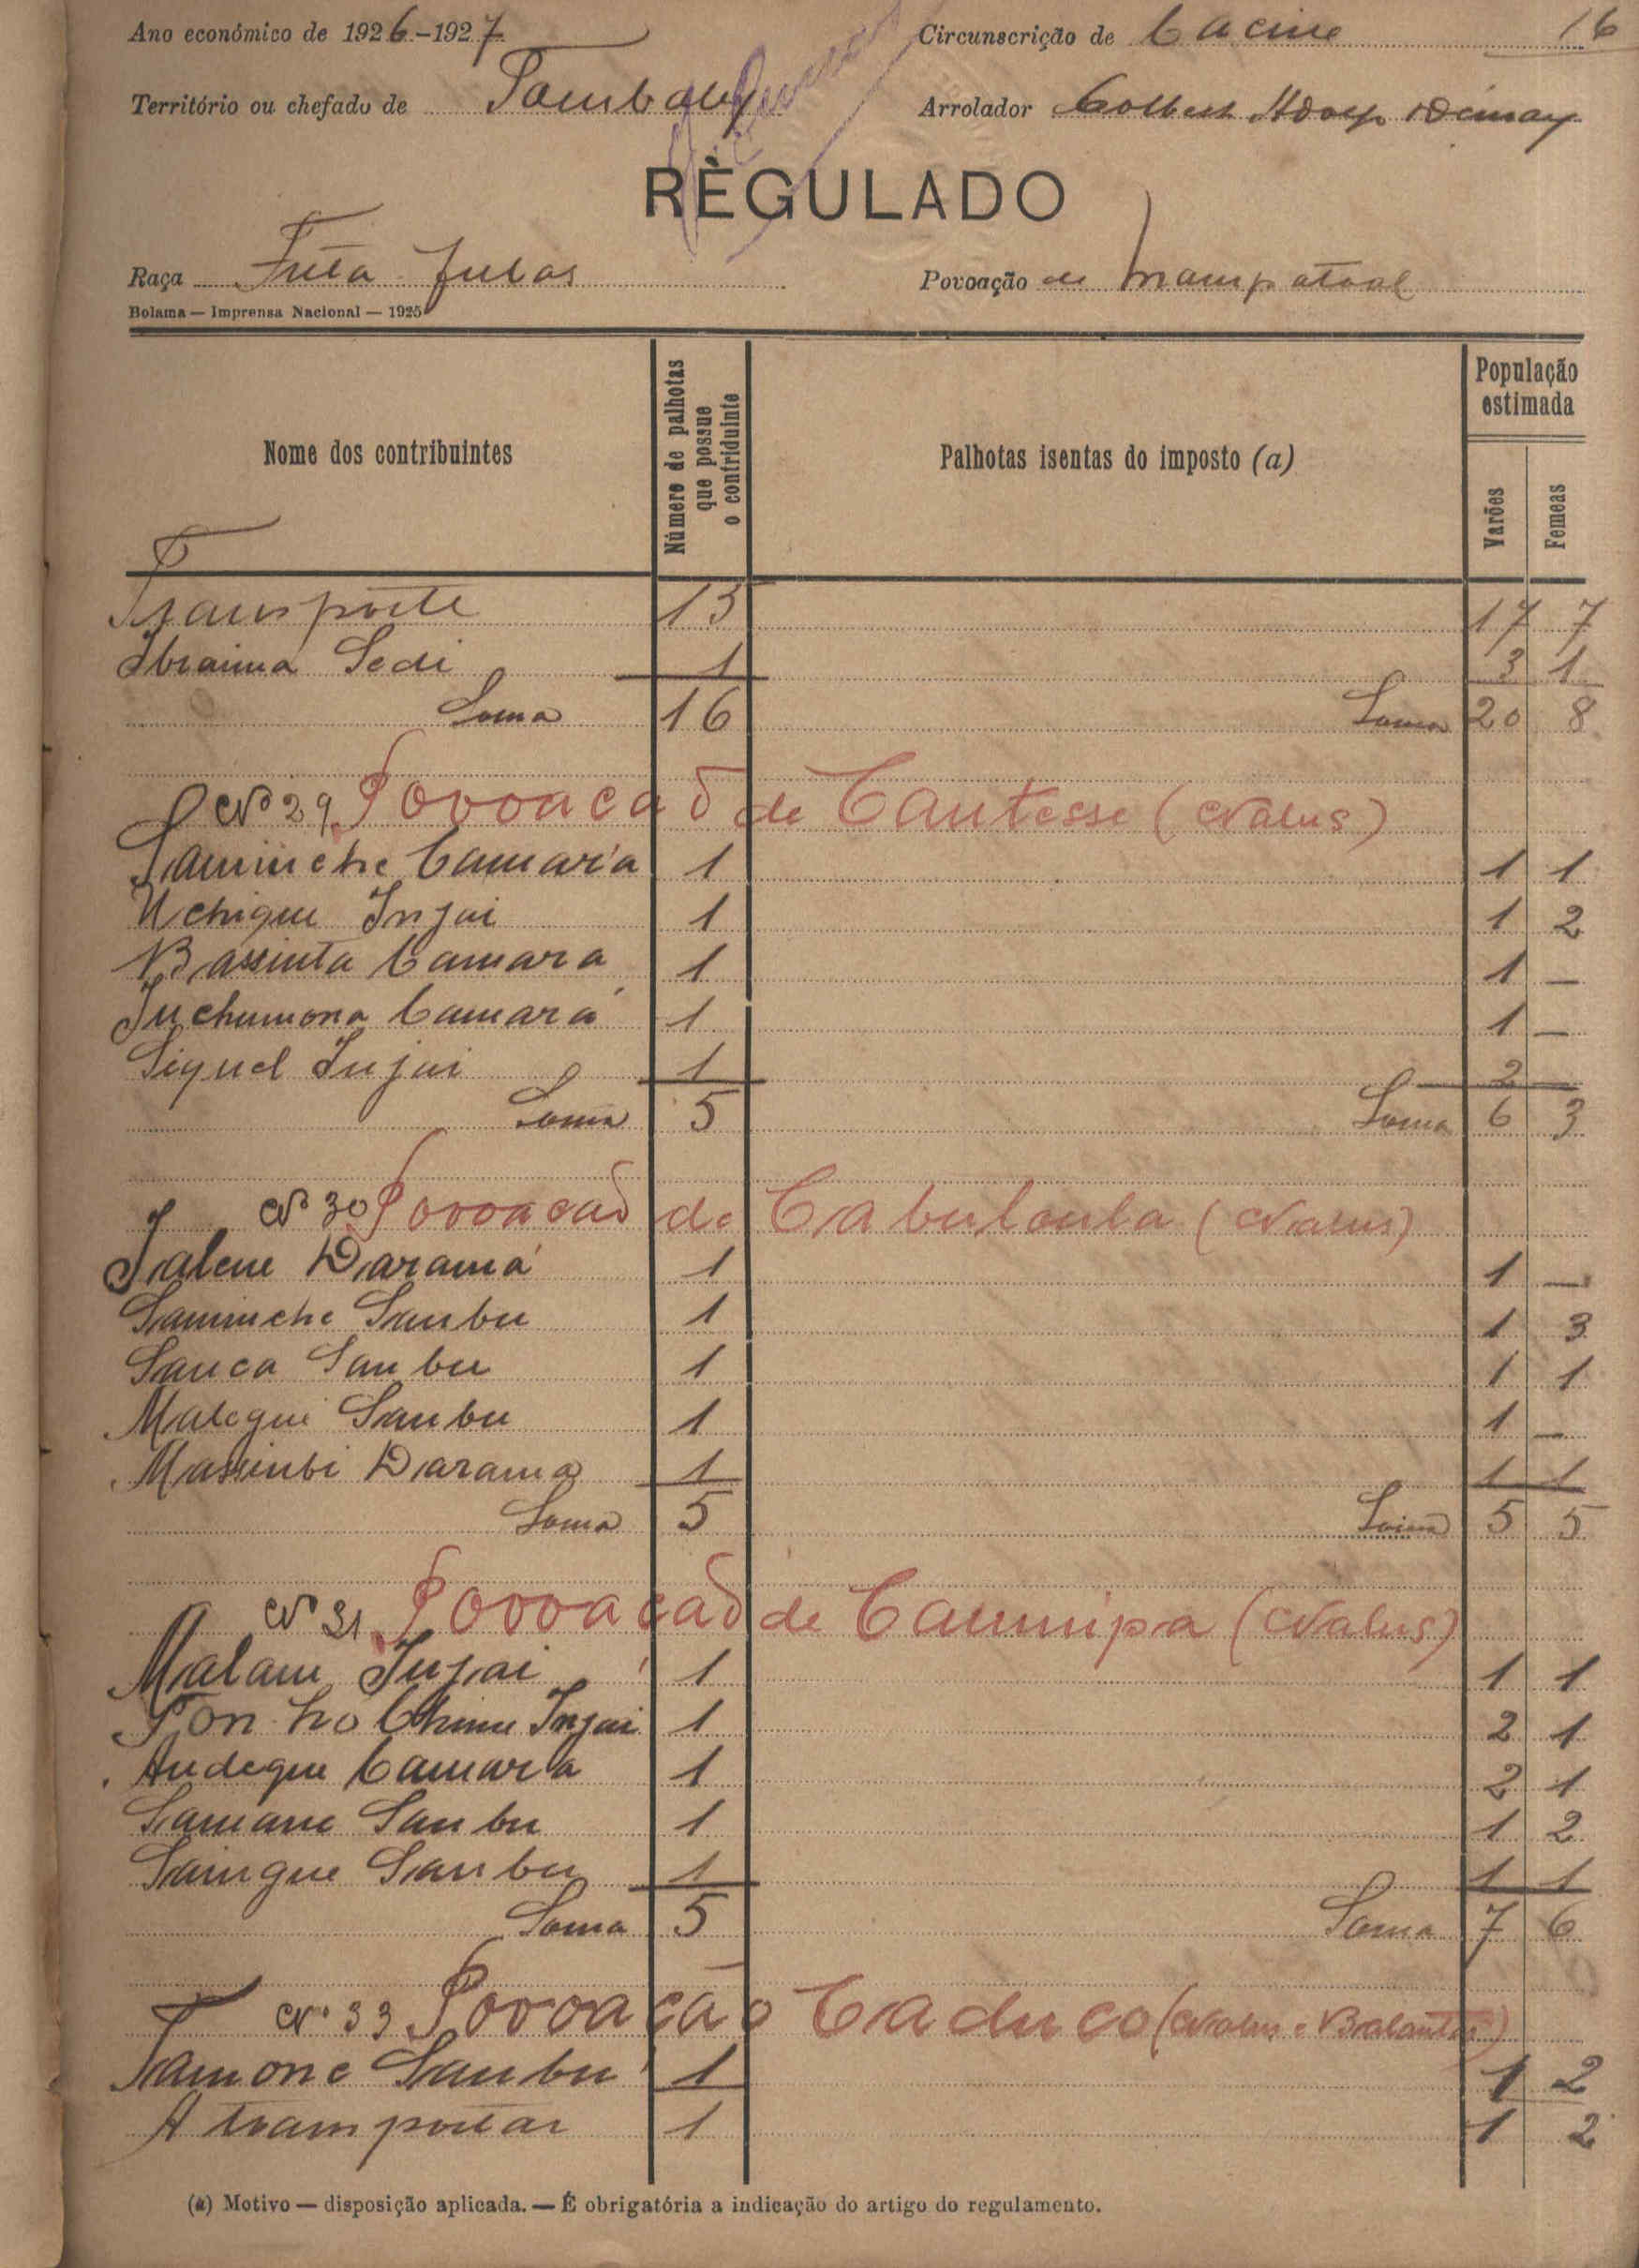 Ano económico de 1926-1927 Circunscrição de Cacine 16
Território ou chefado de Tombaly Arrolador Colbert Adolf Démay
RÈGULADO
Raça Futa Fulas Povoação de Mampatool
Bolama — Imprensa Nacional — 1925
Nome dos contribuintes Número de palhotas que possue o contriduinte Palhotas isentas do imposto (a) População estimada Varões Femeas
Transporte 15 17 7
Ibraima Sedi 1 3 1
Soma 16 Soma 20 8
Nº 29 Povoacaõ de Cantesse (Nalus)
Saminche Camará 1 1 1
Uchique Injai 1 1 2
Bassinta Camara 1 1 —
Juchumona Camará 1 1 —
Siquel Injai 1 2 —
Soma 5 Soma 6 3
Nº 30 Povoacaõ de Cabuloula (Nalus)
Jalene Daramá 1 1 —
Saminche Sanbu 1 1 3
Sanca Sanbu 1 1 1
Malegui Sanbu 1 1 —
Massinbi Darama 1 1 1
Soma 5 Soma 5 5
Nº 31 Povoacaõ de Caunipa (Nalus)
Malam Injai 1 1 1
Ton-ho Chime Injai 1 2 1
Andeque Camara 1 2 1
Samane Sanbu 1 1 2
Saingue Sanbu 1 1 1
Soma 5 Soma 7 6
Nº 33 Povoacão Caduco (Nalus e Balantas)
Tamone Sanbu 1 1 2
A transportar 1 1 2
(a) Motivo — disposição aplicada. — É obrigatória a indicação do artigo do regulamento.